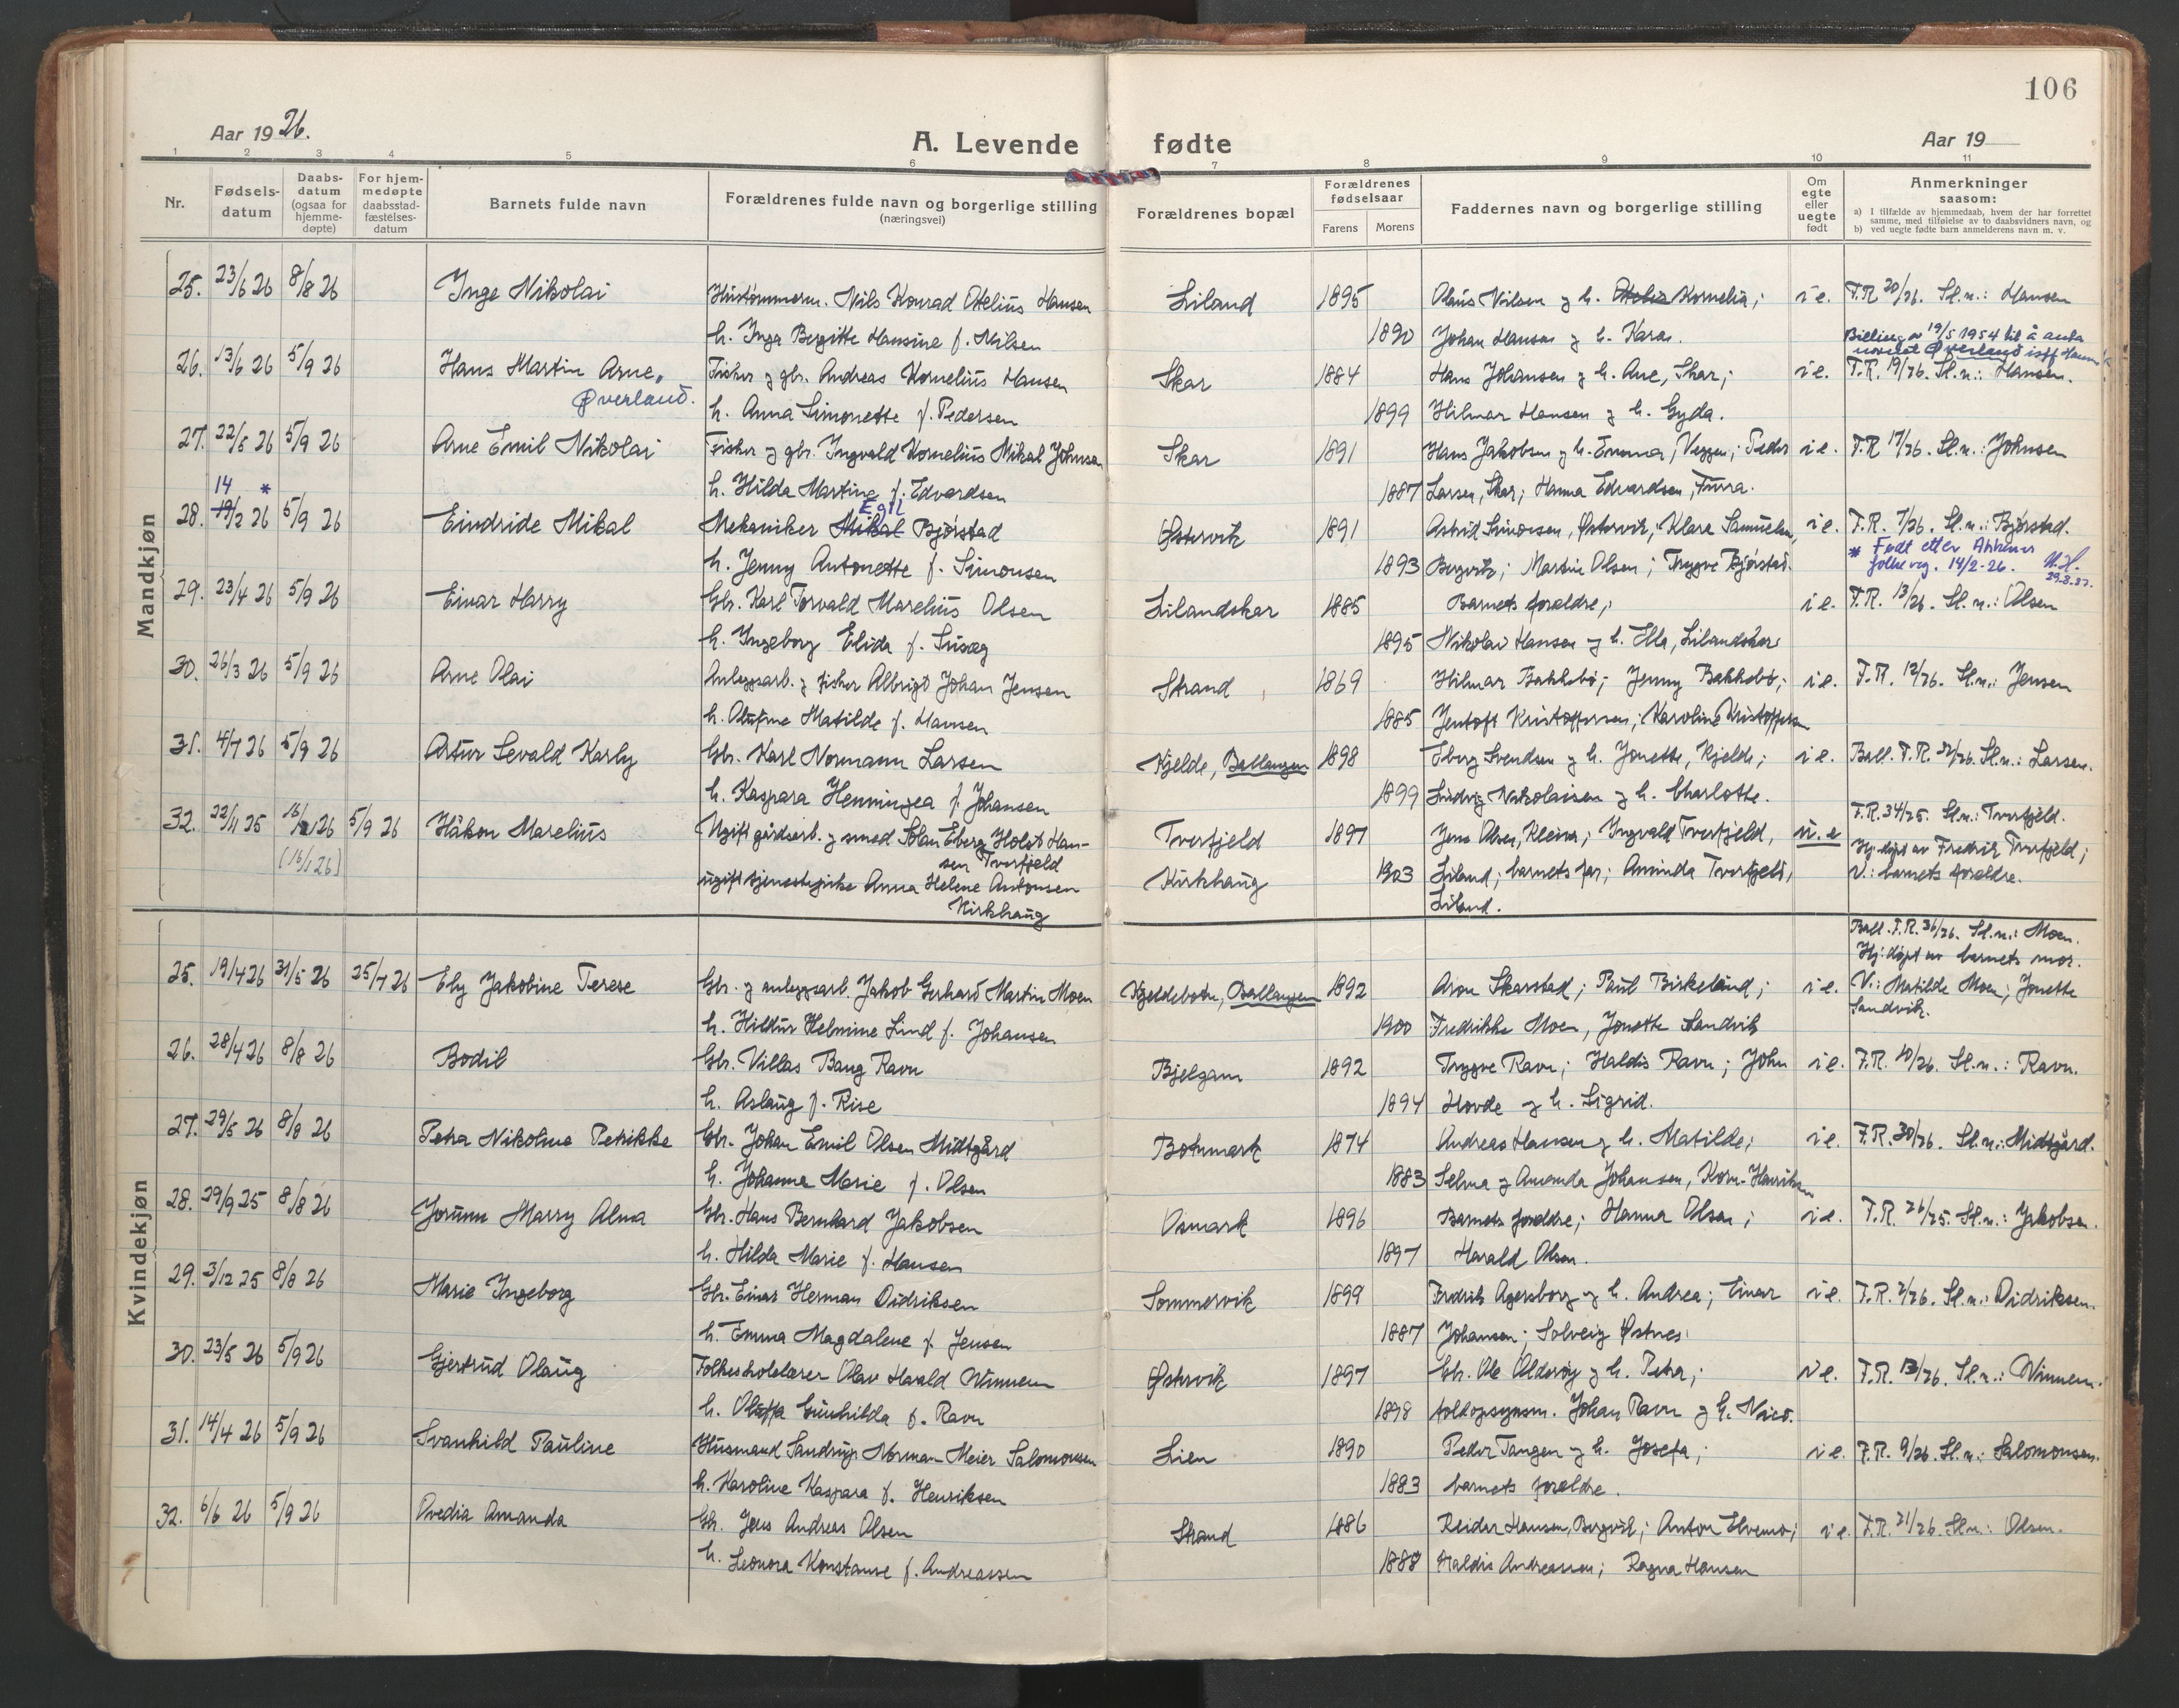 106
Aar 1926.
A. Levende fødte
Aar 19
1 2 3 4 5 6 7 8 9 10 11
Nr.
Fødsels-
datum
Daabs-
datum
(ogsaa for
hjemme-
døpte)
For hjem-
medøpte
daabsstad-
fæstelses-
datum
Barnets fulde navn
Forældrenes fulde navn og borgerlige stilling
(næringsvei)
Forældrenes bopæl
Forældrenes
fødselsaar
Farens Morens
Faddernes navn og borgerlige stilling
Om
egte
eller
uegte
født
Anmerkninger
saasom:
a) I tilfælde av hjemmedaab, hvem der har forrettet
samme, med tilføielse av to daabsvidners navn, og
b) ved uegte fødte barn anmelderens navn m. v.
Mandkjøn
25. 23/6 26 8/8 26 Inge Nikolai Hustømmerm. Nils Konrad Otelius Hansen Liland 1895 Olaus Nilsen og h. Otelia Kornelia; i e. F.R. 20/26. Sl.n.: Hansen
h. Inga Bergitte Hansine f. Nilsen 1890 Johan Hansen og h. Kara. Billing av 19/5 1954 til å anta
navnet Øverland istf Hansen
26. 13/6 26 5/9 26 Hans Martin Arne. Fisker og gbr. Andreas Kornelius Hansen Skar 1884 Hans Johansen og h. Ane, Skar; i e. F.R. 19/26. Sl.n.: Hansen.
Øverland. h. Anna Simonette f. Pedersen 1899 Hilmar Hansen og h. Gyda.
27. 22/5 26 5/9 26 Arne Emil Nikolai Fisker og gbr. Ingvald Kornelius Mikal Johnsen Skar 1891 Hans Jakobsen og h. Emma, Veggen; Peder i e. F.R. 17/26. Sl.n.: Johnsen
h. Hilda Martine f. Edvardsen 1887 Larsen, Skar; Hanna Edvardsen,
14 * Egil
28. 19/2 26 5/9 26 Eindride Mikal Mekaniker Mikal Bjørstad Østervik 1891 Astrid Simonsen, Østervik; Klara Samuelsen, i e. F.R. 7/26. Sl.n.: Bjørstad.
h. Jenny Antonette f. Simonsen 1893 Bergvik; Martin Olsen; Trygve Bjørstad. * Født etter Ankenes
folkereg. 14/2-26.
29. 23/4 26 5/9 26 Einar Harry Gbr. Karl Torvald Marelius Olsen Lilandskar 1885 Barnets foreldre; i e. F.R. 13/26. Sl.n.: Olsen
h. Ingeborg Elida f. 1895 Nikolai Hansen og h. Ella, Lilandskar
30. 26/3 26 5/9 26 Arne Olai Anleggsarb. og fisker Albrigt Johan Jensen Strand 1869 Hilmar Bakkebø; Jenny Bakkebø; i e. F.R. 12/26. Sl.n.: Jensen
h. Olufine Matilde f. Hansen 1885 Jentoft Kristoffersen; Karoline Kristoffersen
31. 4/7 26 5/9 26 Artur Sevald Karly Gbr. Karl Normann Larsen Kjelde, Ballangen 1898 Eberg Svendsen og h. Jonette, Kjelde; i e. Ball. F.R. 52/26. Sl.n.: Larsen.
h. Kaspara Henningea f. Johansen 1899 Ludvig Nikolaisen og h. Charlotte.
F.R. 34/25. Sl.n.: Tverfjeld.
32. 22/11 25 16/1 26 5/9 26 Håkon Marelius Ugift gårdsarb. og smed Johan Eberg Holst Han- Tverfjeld 1897 Jens Olsen, Kleiva; Ingvald Tverfjeld, u. e Hj. døpt av Fredrik Tverfjeld;
(16/1 26) sen Tverfjeld
ugift tjenestepike Anna Helene Antonsen Kirkhaug 1903 Liland; barnets far; Aminda Tverfjeld, V.: barnets foreldre.
Kirkhaug Liland.
Kvindekjøn
Ball. F.R. 36/26. Sl.n.: Moen.
Hj. døpt av barnets mor.
25. 19/4 26 31/5 26 25/7 26 Ely Jakobine Terese Gbr. og anleggsarb. Jakob Gerhard Martin Moen Kjeldebotn, Ballangen 1892 Aron Skarstad; Paul Birkeland; i e. V.: Matilde Moen; Jonette
h. Hildur Helmine Lind f. Johansen 1900 Fredrikke Moen, Jonette Sandvik Sandvik.
26. 28/4 26 8/8 26 Bodil Gbr. Villas Bang Ravn Bjelgam 1892 Trygve Ravn; Haldis Ravn; John i e. F.R. 10/26. Sl.n.: Ravn.
h. Aslaug f. Rise 1894 Hovde og h. Sigrid.
27. 29/5 26 8/8 26 Petra Nikoline Petrikke Gbr. Johan Emil Olsen Midtgård Botnmark 1874 Andreas Hansen og h. Matilde; i e. F.R. 30/26. Sl.n.: Midtgård.
h. Johanna Marie f. Olsen 1883 Selma og Amanda Johansen, Korn. Henriksen
28. 29/9 25 8/8 26 Jorunn Marry Alma Gbr. Hans Bernhard Jakobsen Osmark 1896 Barnets foreldre; Hanna Olsen; i e. F.R. 26/25. Sl.n.: Jakobsen.
h. Hilda Marie f. Hansen 1897 Harald Olsen.
29. 3/12 25 8/8 26 Marie Ingeborg Gbr. Einar Herman Didriksen Sommervik 1899 Fredrik Agersborg og h. Andrea; Einar i e. F.R. 2/26. Sl.n.: Didriksen.
h. Emma Magdalene f. Jensen 1887 Johansen; Solveig Østnes.
30. 23/5 26 5/9 26 Gjertrud Olaug Folkeskolelærer Olav Harald Winnem Østervik 1897 Gbr. Ole Aldevåg og h. Petra; i e. F.R. 13/26. Sl.n.: Winnem.
h. Gunhilda f. Ravn 1898 Johan Ravn og h.
31. 14/4 26 5/9 26 Svanhild Pauline Husmand Sandrup Norman Meier Salomonsen Lien 1890 Peder Tangen og h. Josefa; i e. F.R. 9/26. Sl.n.: Salomonsen.
h. Karoline Kaspara f. Henriksen 1883 barnets foreldre.
32. 6/6 26 5/9 26 Ovedia Amanda Gbr. Jens Andreas Olsen Strand 1886 Reidar Hansen, Bergvik; Anton Elvemo; i e. F.R. 21/26. Sl.n.: Olsen.
h. Leonora Konstanse f. Andreassen 1888 Haldis Andreassen; Ragna Hansen